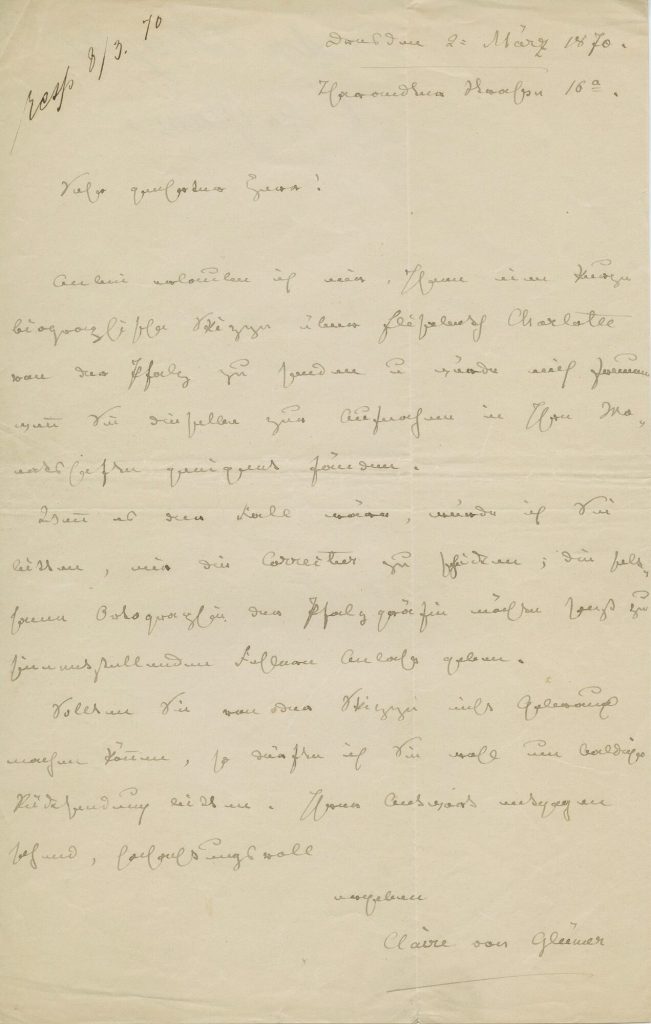 resp 8/3. 70
Dresden 2= März 1870.
Tharandter Straße 16a.
Sehr geehrter Herr!
Anbei erlaube ich mir, Ihnen eine kurze
biographische Skizze über Elisabeth Charlotte
von der Pfalz zu senden u würde mich freuen
wen̅ Sie dieselbe zur Aufnahme in Ihre Mo-
natshefte geeignet fänden.
Wen̅ es der Fall wäre, würde ich Sie
bitten, mir die Correctur zu schicken; die selt-
same Ortographie der Pfalzgräfin möchte sonst zu
sinnentstellenden Fehlern Anlaß geben.
Sollten Sie von der Skizze nicht Gebrauch
machen kön̅en, so dürfte ich Sie wohl um baldige
Rücksendung bitten. Ihrer Antwort entgegen
sehend, hochachtungsvoll
ergeben
Claire von Glümer